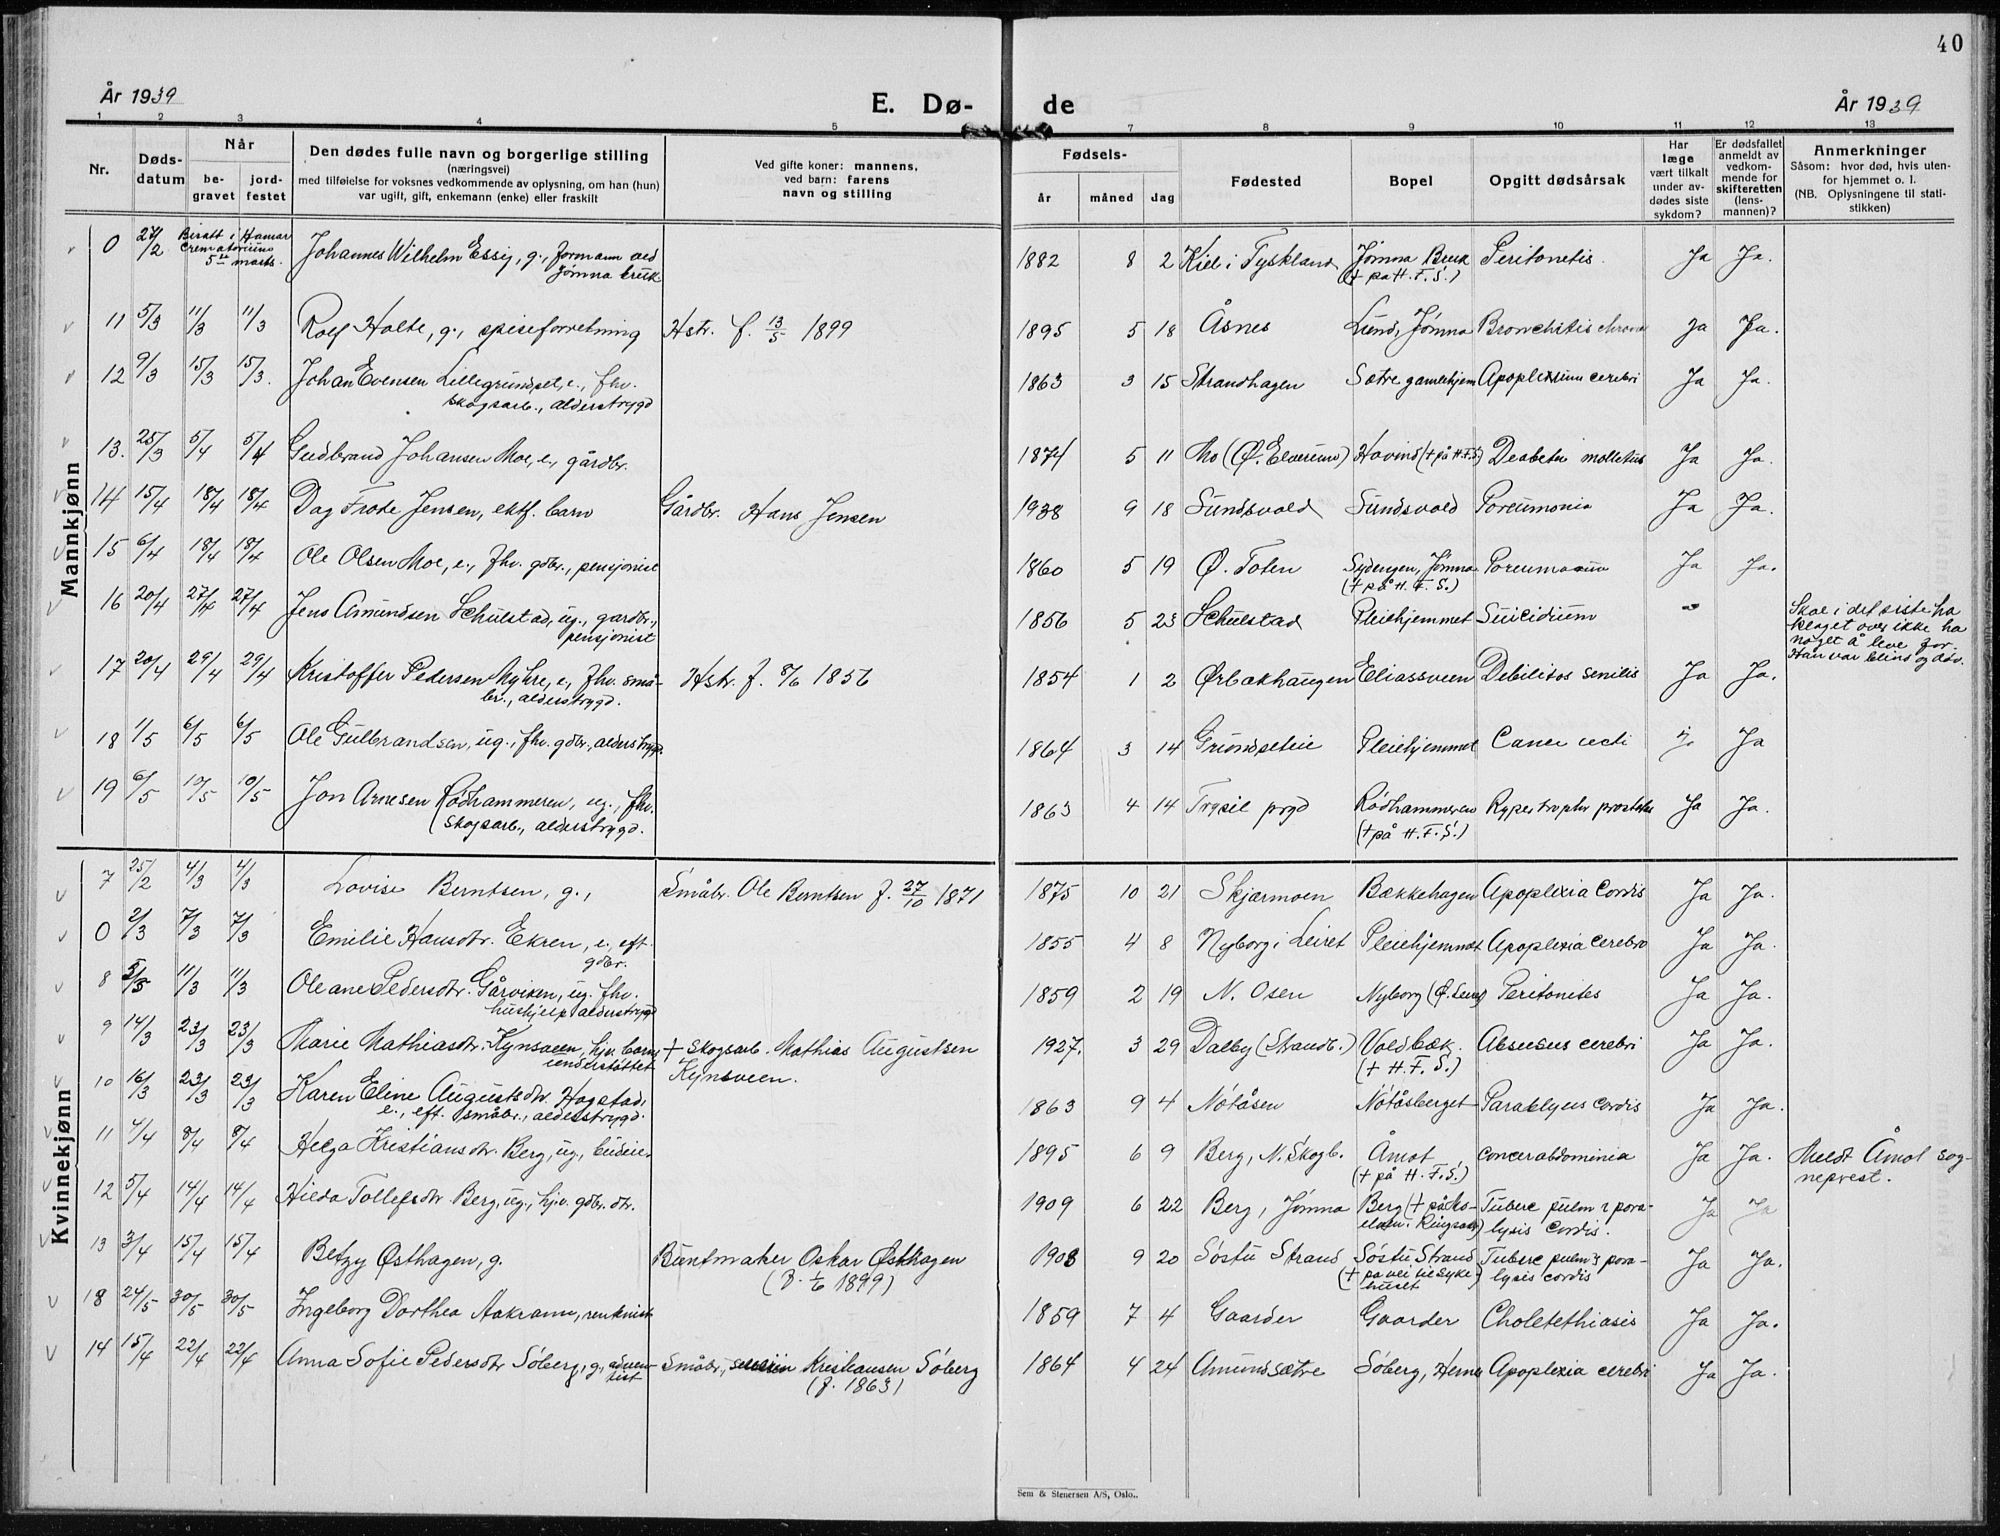 40
År 1939
E. Dø-
de
År 1939
1 2 3 4 5 7 8 9 10 11 12 13
Nr.
Døds-
datum
Når
be-
gravet
jord-
festet
Den dødes fulle navn og borgerlige stilling
(næringsvei)
med tilføielse for voksnes vedkommende av oplysning, om han (hun)
var ugift, gift, enkemann (enke) eller fraskilt
Ved gifte koner: mannens,
ved barn: farens
navn og stilling
Fødsels-
år måned dag
Fødested
Bopel
Opgitt dødsårsak
Har
læge
vært tilkalt
under av-
dødes siste
sykdom?
Er dødsfallet
anmeldt av
vedkom-
mende for
skifteretten
(lens-
mannen)?
Anmerkninger
Såsom: hvor død, hvis uten-
for hjemmet o. l.
(NB. Oplysningene til stati-
stikken)
Mannkjønn
0 27/2 Bisatt i Hamar Crematorium 5te marts. Johannes Wilhelm Essig, g., formann ved Jømna bruk 1882 8 2 Kiel i Tyskland Jømna Bruk (+ på H.F.S.) Peritonetis. Ja Ja.
11 5/3 11/3 11/3 Rolf Holte, g., spiseforretning Hstr. f. 13/5 1899 1895 5 18 Åsnes Lund, Jømna Bronchitis chronic Ja Ja.
12 9/3 15/3 15/3. Johan Evensen Lillegrundset, e., fhv. skogsarb., alderstrygd 1863 3 15 Strandhagen Sætre gamlehjem Apoplexium cerebri Ja Ja.
13. 25/3 5/4 5/4 Gudbrand Johansen Moe, e., gårdbr. 1874 5 11 Mo (Ø. Elverum) Hovind (+ på H.F.S) Deabetes mollitus Ja Ja.
14 15/4 18/4 18/4 Dag Frode Jensen, ektf. barn Gårdbr. Hans Jensen 1938 9 18 Sundsvold Sundsvold Pneumonia Ja Ja.
15 6/4 18/4 18/4 Ole Olsen Moe, e., fhv. gdbr., pensjonist 1860 5 19 Ø. Toten Sydengen, Jømna (+ på H.F.S.) Ja Ja.
16 20/4 27/4 27/4 Jens Amundsen Schulstad, ug., gardbr., pensjonist 1856 5 23 Schulstad Pleiehjemmet Suicidium Skal i det siste ha klaget over ikke ha noget å leve for. Han var blind og døv.
17 20/4 29/4 29/4 Kristoffer Pedersen Myhre, e., fhv. små-br., alderstrygd. Hstr. f. 8/6 1856 1854 1 2 Ørbækhaugen Eliassveen Debilitas senilis Ja Ja.
18 1/5 6/5 6/5 Ole Gulbrandsen, ug., fhv. gdbr., alderstrygd 1864 3 14 Grundsetlie Pleiehjemmet Cancer recti Ja Ja
19 6/5 10/5 10/5 Jon Arnesen Rødhammeren, ug., fhv. skogsarb., alderstrygd. 1863 4 14 Trysil prgd Rødhammeren (+ på H.F.S.) Rypertrophi prostatae Ja Ja.
Kvinnekjønn
7 25/2 4/3 4/3 Lovise Berntsen, g., Småbr. Ole Berntsen f. 27/10 1871 1875 10 21 Skjærmoen Bækkehagen Apoplexia Cordis Ja Ja.
0 2/3 7/3 7/3 Emilie Hansdtr. Ekren, e. eft. gdbr. 1855 4 8 Nyborg i Leiret Pleiehjemmet Apoplexia Cerebro Ja Ja.
8 11/3 11/3 Oleane Pedersdtr. Gårviken, ug. fhv. hushjelp alderstrygd 1859 2 19 N. Osen Nyborg Peritonites Ja Ja.
9 14/3 23/3 23/3 Marie Mathiasdtr. Kynsveen, hjv. barn, understøttet + Skogsarb. Mathias Augustsen Kynsveen. 1927. 3 29 Dalby (Strandb.) Voldbæk. (+ H.F.S.) Absesus cerebri Ja Ja.
10 16/3 23/3 23/3 Karen Eline Augustsdtr. Hogstad, e., eft. småbr., alderstrygd. 1863 9 4 Nøtåsen Nøtåsberget Paraklyus cordis Ja Ja.
11 4/4 8/4 8/4 Helga Kristiansdtr. Berg, ug., budeie. 1895 6 9 Berg, N. Skogb. Åmot (+ på H.F.S.) Concerabdominia Ja Ja. Meldt Åmot sogneprest.
12 5/4 14/4 14/4 Hilda Tollefsdtr. Berg, ug., hjv. gdbr. dtr. 1909 6 22 Berg, Jømna Berg Tuberc pulm & paralysis cordis. Ja Ja
13 3/4 15/4 15/4 Betzy Østhagen, g. Buntmaker Oskar Østhagen (f. 1/6 1899) 1908 9 20 Søstu Strand Søstu Strand (+ på vei til sykehuset) Tuberc pulm & paralysis cordis Ja Ja.
18 24/5 30/5 30/5 Ingeborg Dorthea Aakrann, rentenist 1859 7 4 Gaarder Gaarder Choletethiasis Ja Ja.
14 15/4 22/4 22/4 Anna Sofie Pedersdtr Søberg, g., adventist Småbr., Severin Kristiansen Søberg (f. 1863) 1864 4 24 Amundsætre Søberg, Hernes Apoplexia cerebri Ja Ja.
Sem & Stenersen A/S, Oslo..